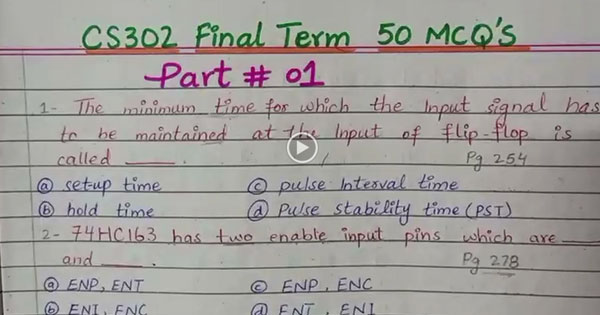 CS302 Final Term 50 MCQ'S
Part # 01
1- The minimum time for which the Input signal has
to be maintained at the Input of flip-flop is
called ____. Pg 254
ⓐ set-up time ⓒ pulse Interval time
ⓑ hold time ⓓ Pulse stability time (PST)
2- 74HC163 has two enable input pins which are ____
and ____. Pg 278
ⓐ ENP, ENT ⓒ ENP, ENC
ⓑ ENI, ENC ⓓ ENT, ENI